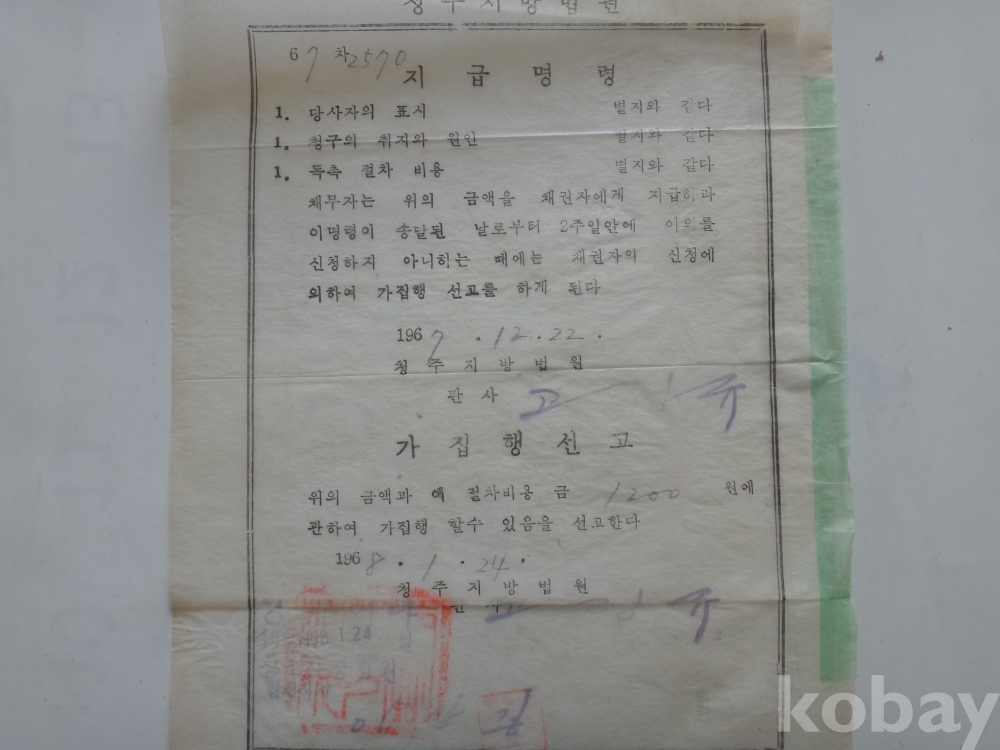 청주지방법원
67 차 2570
지급명령
1. 당사자의 표시 별지와 같다
1. 청구의 취지와 원인 별지와 같다
1. 독촉 절차 비용 별지와 같다
채무자는 위의 금액을 채권자에게 지급하라
이명령이 송달된 날로부터 2주일안에 이의를
신청하지 아니하는 때에는 채권자의 신청에
의하여 가집행 선고를 하게 된다
1967 . 12 . 22 .
청주지방법원
판사 고 규
가집행선고
위의 금액과 이 절차비용 금 1200 원에
관하여 가집행 할수 있음을 선고한다
1968 . 1 . 24 .
청주지방법원
판사 규
1.24 일
kobay